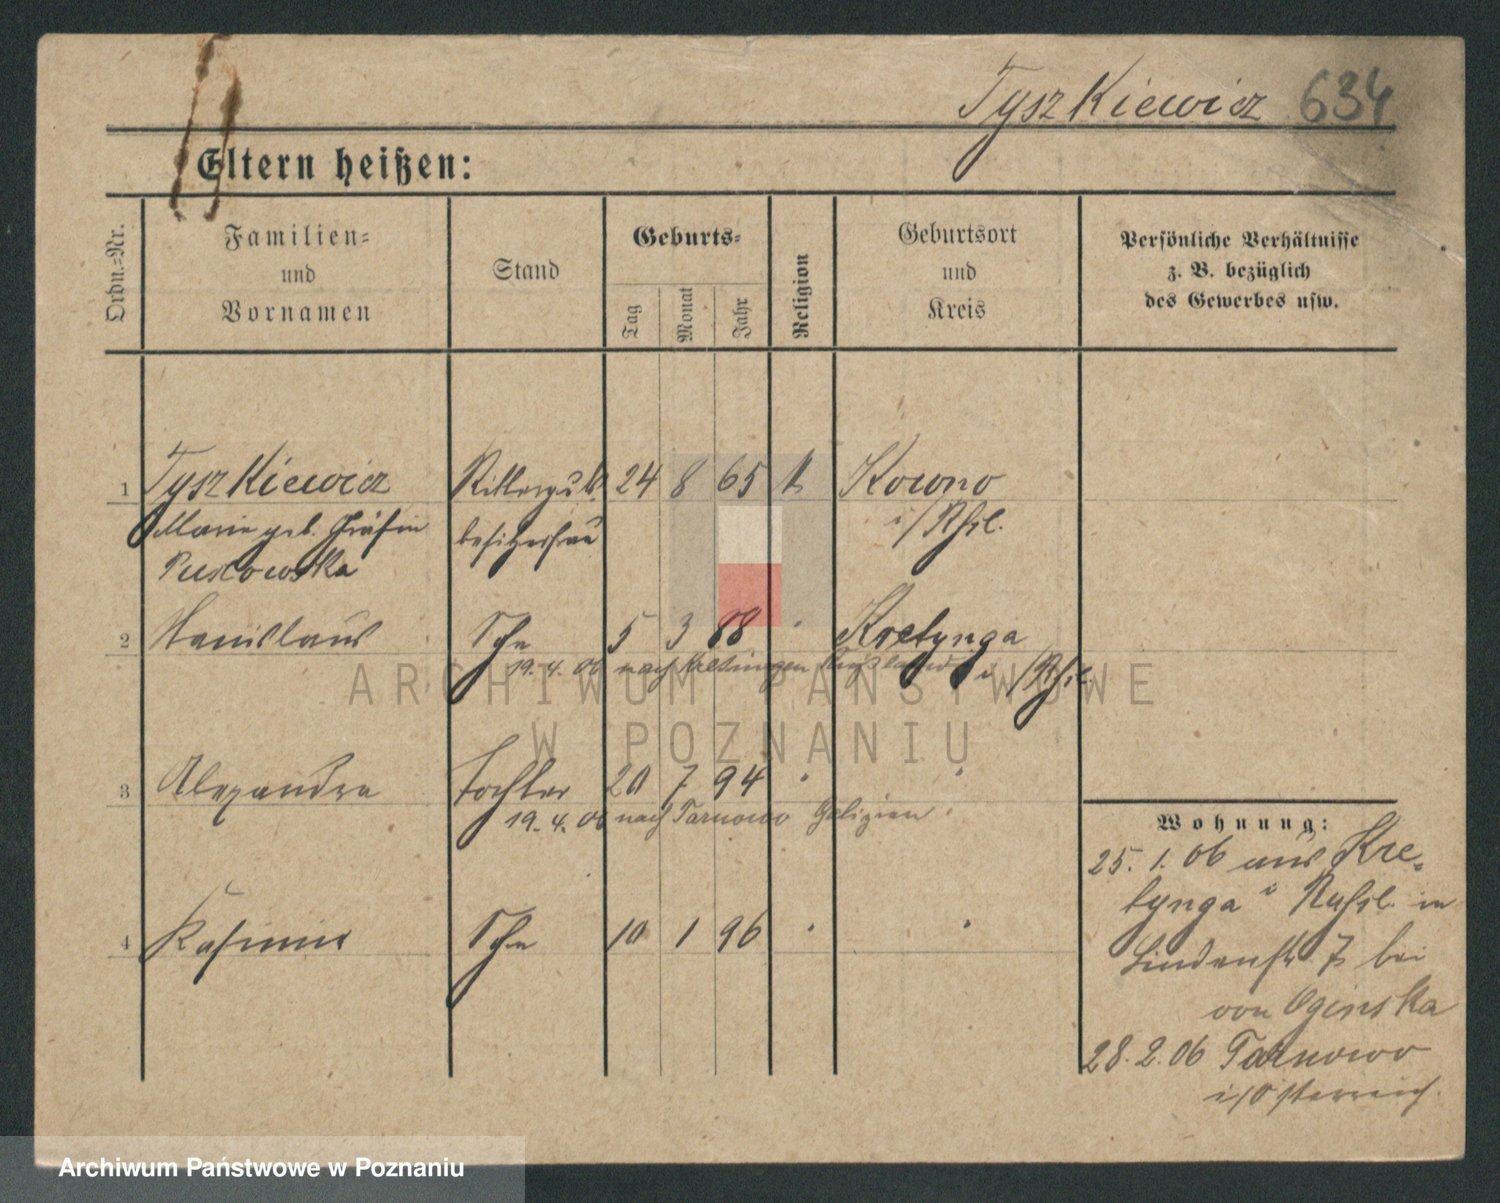 Tyszkiewicz 634
Eltern heißen:
Ordn.-Nr.
Familien-
und
Vornamen
Stand
Geburts-
Tag
Monat
Jahr
Religion
Geburtsort
und
Kreis
Persönliche Verhältnisse
z. B. bezüglich
des Gewerbes usw.
1 Tyszkiewicz Ritterguts 24 8 65 k Kowno
Marie geb. Gräfin besitzersfrau i/Rßl.
Puslowska
2 Stanislaus Sohn 5 3 88 " Kretynga
19. 4. 06 nach Kretingen Rußland i/Rßl.
3 Alexandra Tochter 20 7 94 " "
19. 4. 06 nach Tarnowo Galizien
4 Kasimir Sohn 10 1 96 " "
Wohnung:
25. 1. 06 aus Kre-
tynga i Rußl. in
Lindenstr. 7 bei
von Oginska
28. 2. 06 Tarnowo
i/Österreich.
ARCHIWUM PAŃSTWOWE
W POZNANIU
Archiwum Państwowe w Poznaniu